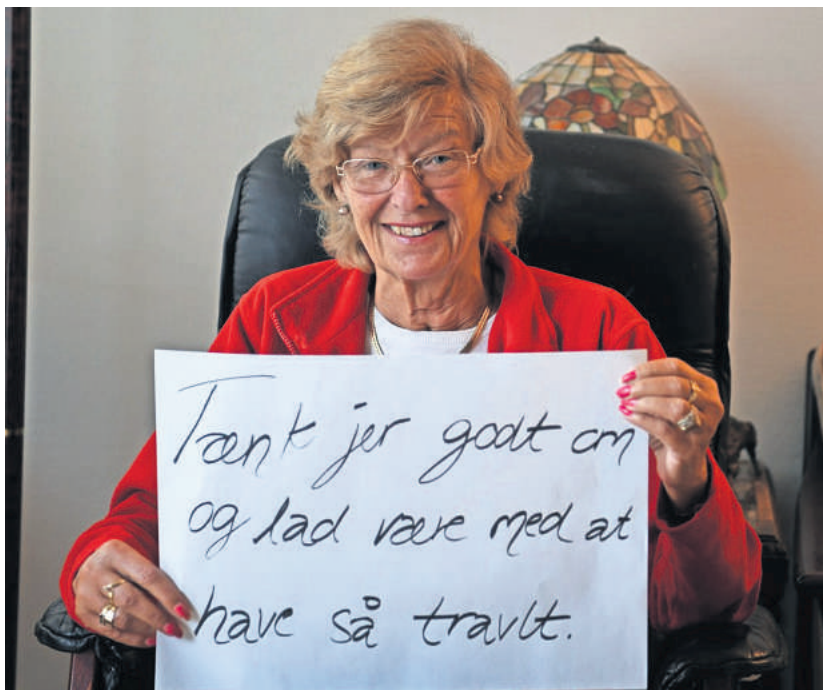 Tænk jer godt om
og lad være med at
have så travlt.